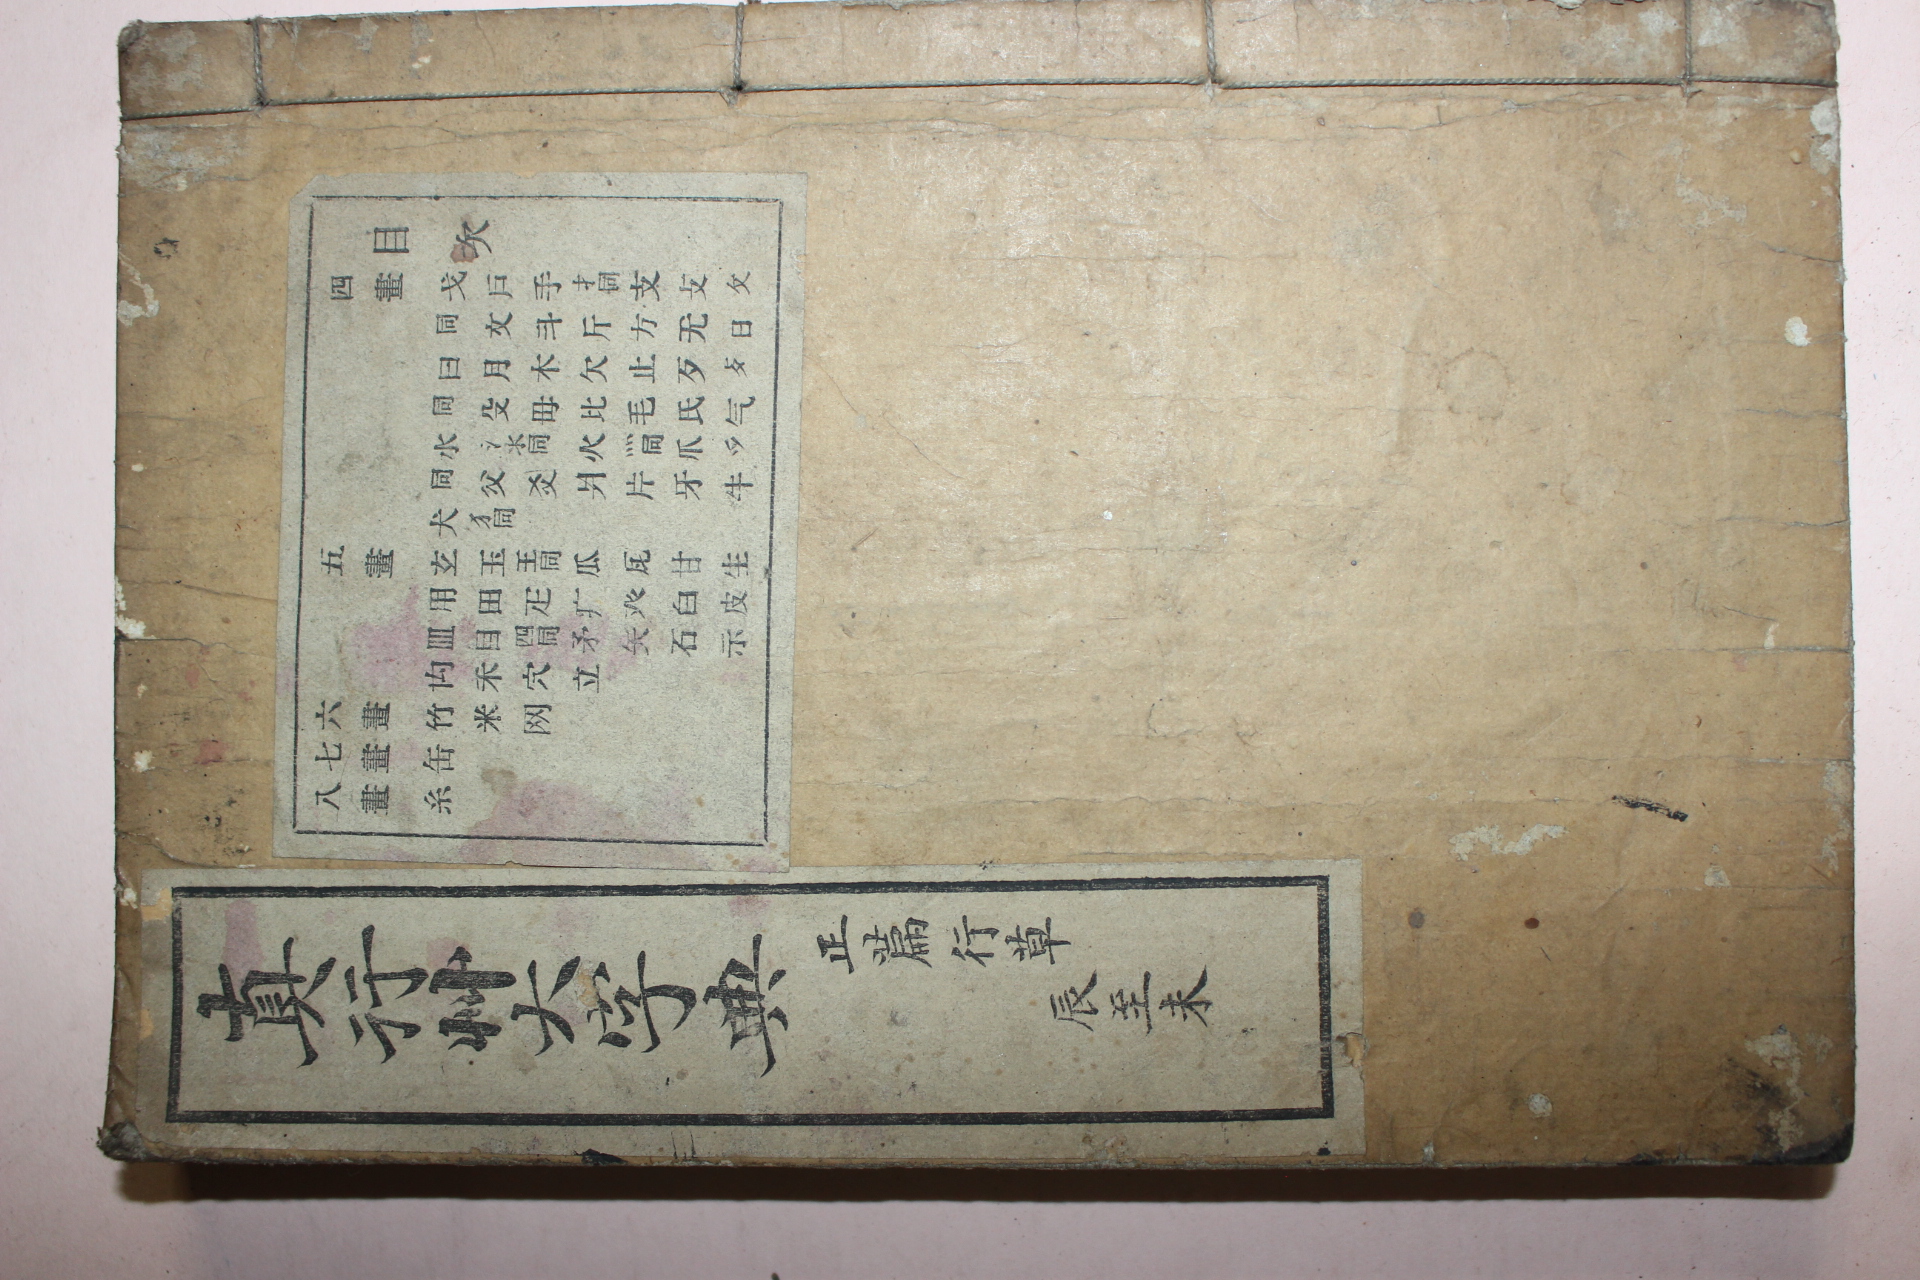 真行艸大字典
正篇行草
辰至未
目次
四畫 戈戶手扌同支攴攵
同文斗斤方无日
曰月木欠止歹歺
同殳毋比毛氏气
水氵氺同火灬同爪爫
同父爻爿片牙牛
犬犭同
五畫 玄玉王同瓜瓦甘生
用田疋疒癶白皮
皿目罒同矛矢石示
禸禾穴立
六畫 竹米网
七畫 缶
八畫 糸